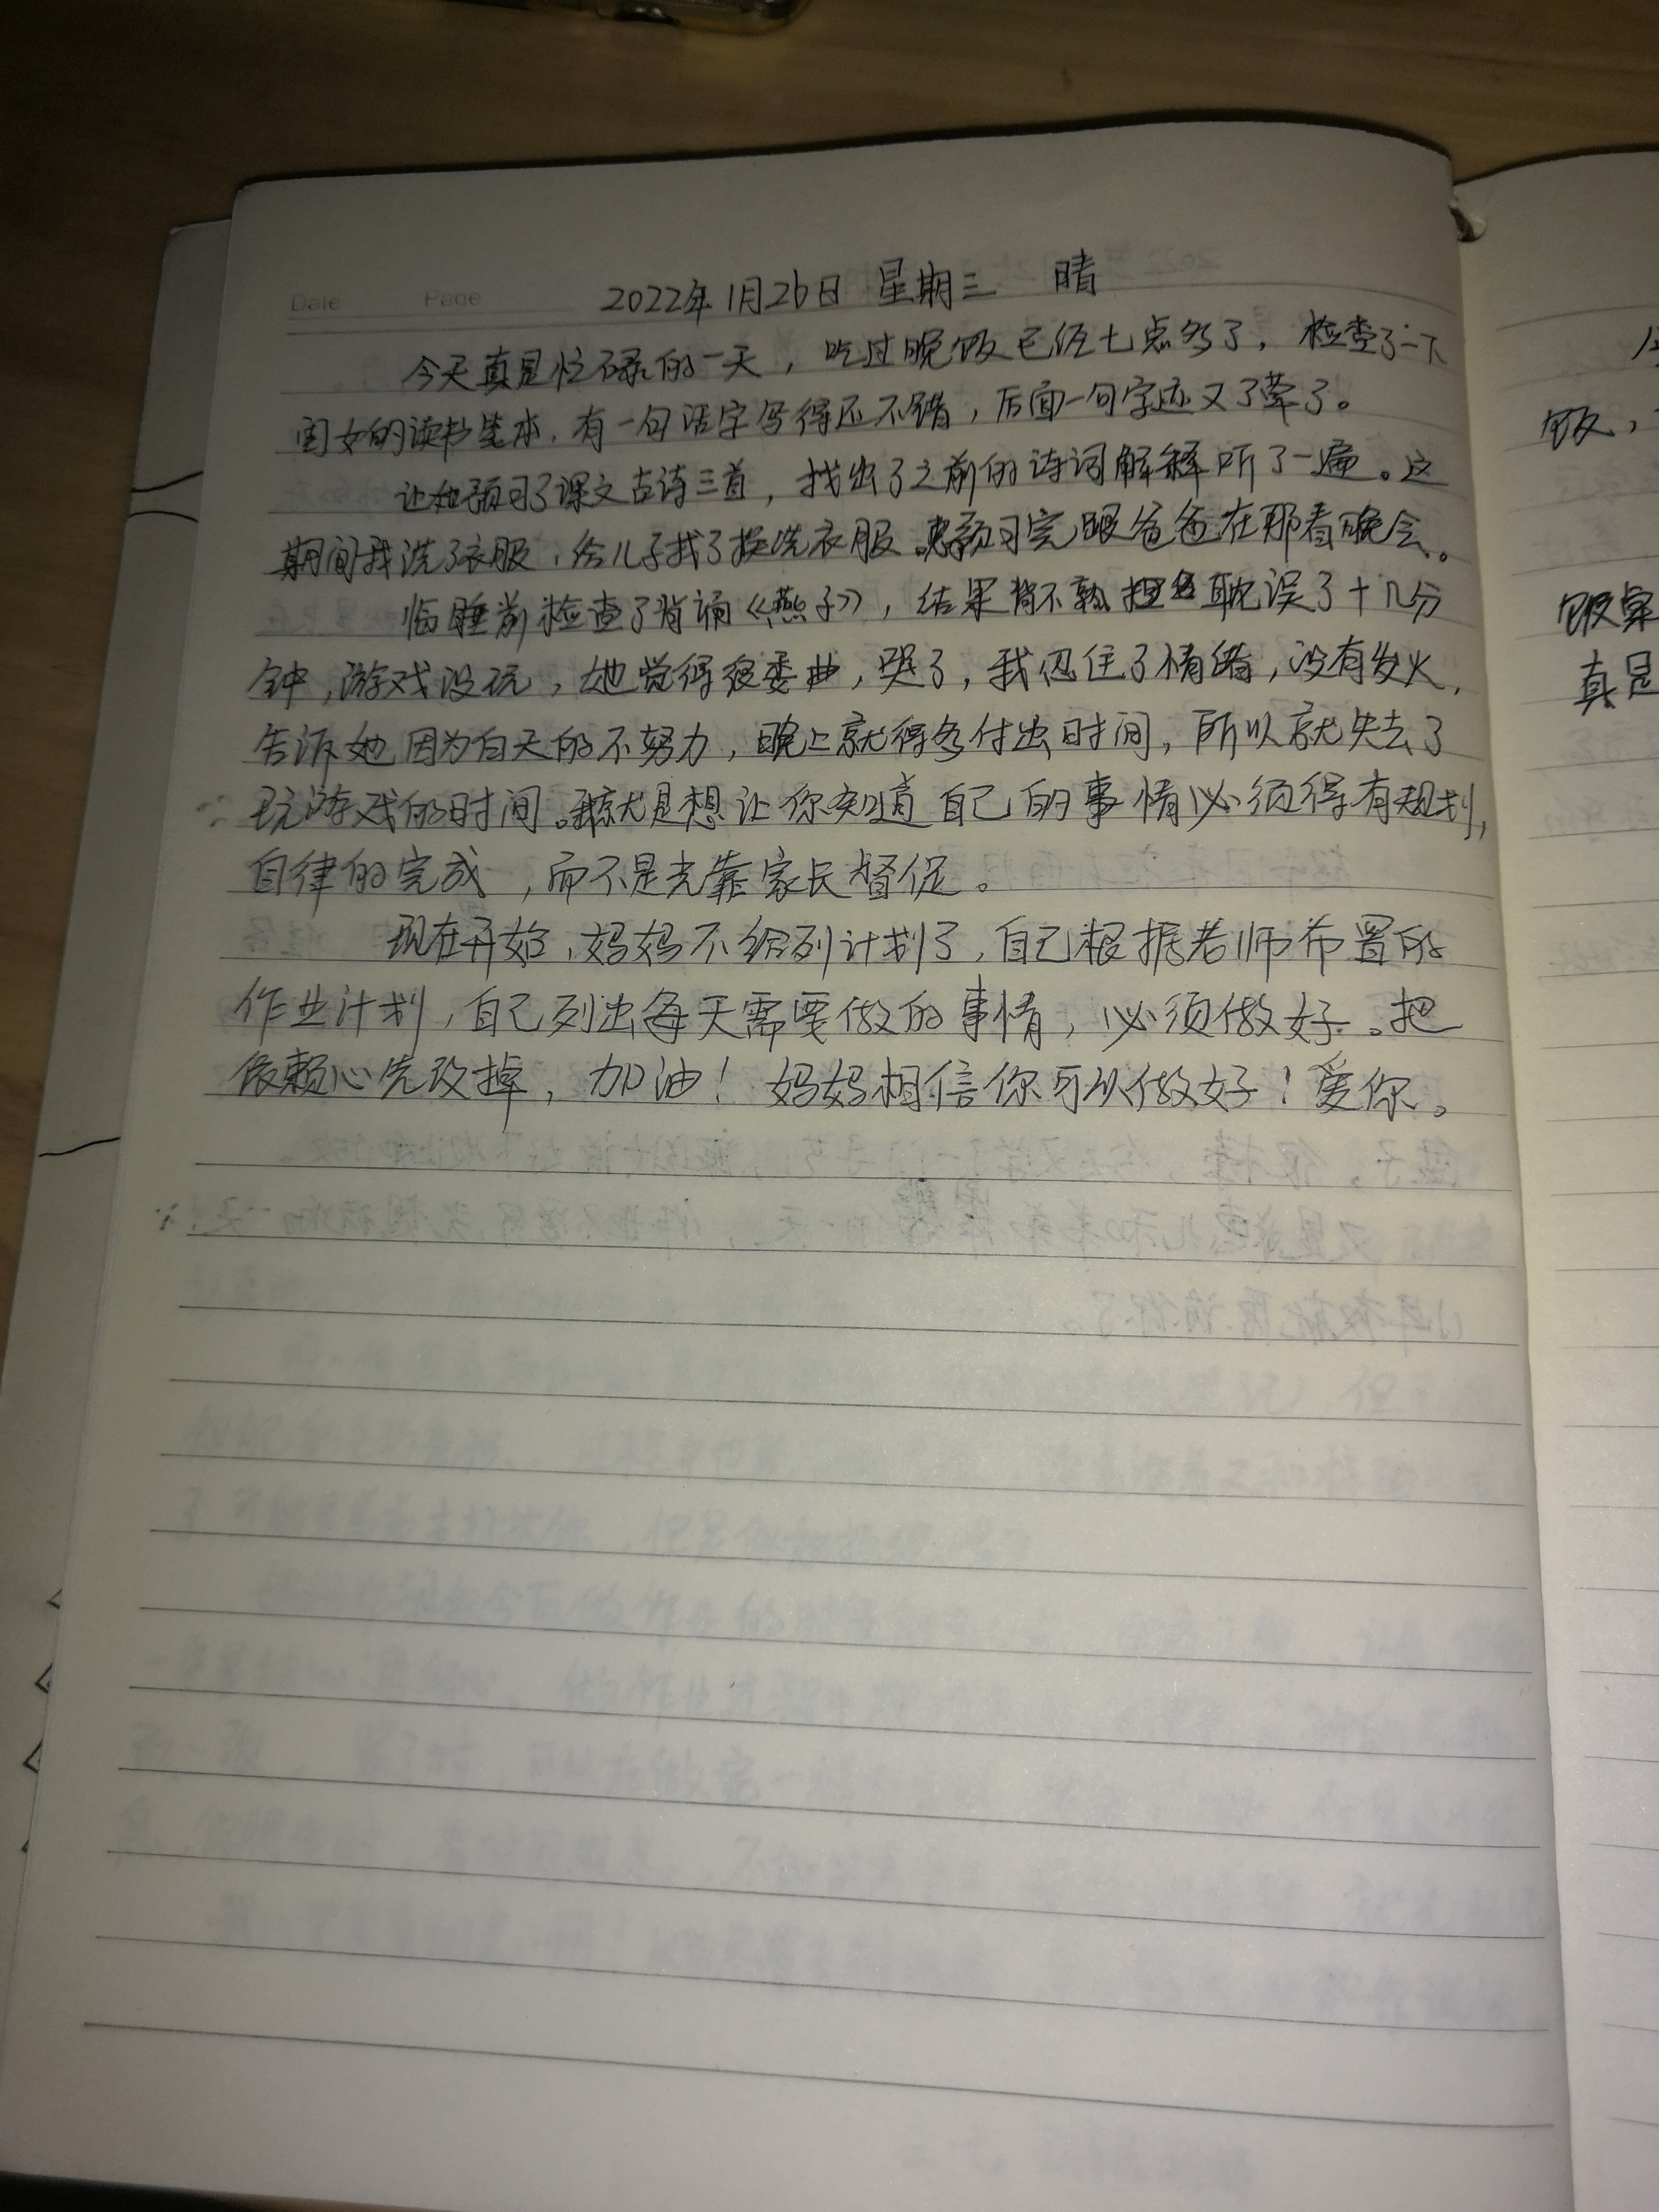 Date Page 2022年1月26日 星期三 晴
今天真是忙碌的一天，吃过晚饭已经七点多了，检查了一下
闺女的读书笔本，有一句话字写得还不错，后面一句字迹又了草了。
让她预习了课文古诗三首，找出了之前的诗词解释听了一遍。这
期间我洗了衣服，给儿子找了换洗衣服。预习完跟爸爸在那看晚会。
临睡前检查了背诵《燕子》，结果背不熟耽误了十几分
钟，游戏没玩，她觉得很委曲，哭了，我忍住了情绪，没有发火，
告诉她因为白天的不努力，晚上就得多付出时间，所以就失去了
玩游戏的时间。我就是想让你知道自己的事情必须得有规划，
自律的完成，而不是光靠家长督促。
现在开始，妈妈不给列计划了，自己根据老师布置的
作业计划，自己列出每天需要做的事情，必须做好。把
依赖心先改掉，加油！妈妈相信你可以做好！爱你。
饭，
饭菜
真是